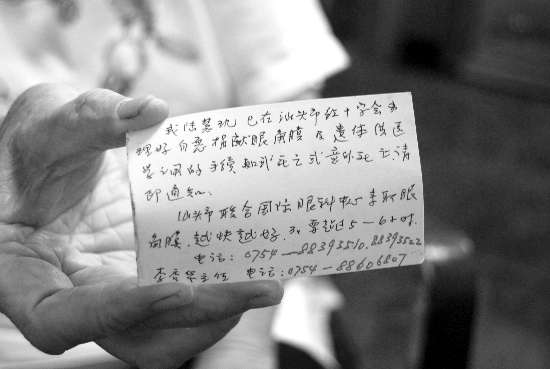 我陆慧玑已在汕头市红十字会办
理好自愿捐献眼角膜及遗体供医
学之用的手续如我死亡或意外死亡请
即通知:
汕头市联合国际眼科中心来取眼
角膜.越快越好.不要超过5—6小时.
电话:0754—88393510.88393502
李 主任 电话:0754—88606807